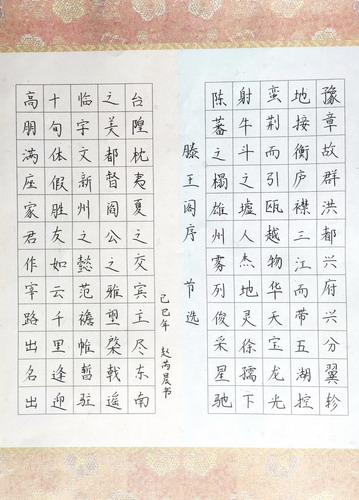 豫章故群洪都兴府兴分翼轸
地接衡庐襟三江而带五湖控
蛮荆而引瓯越物华天宝龙光
射牛斗之墟人杰地灵徐孺下
陈蕃之榻雄州雾列俊采星驰
滕王阁序 节选
台隍枕夷夏之交宾主尽东南
之美都督阎公之雅望棨戟遥
临宇文新州之懿范襜帷暫驻
十旬体假胜友如云千里逢迎
高朋满座家君作宰路出名出
己巳年 赵芮晨书